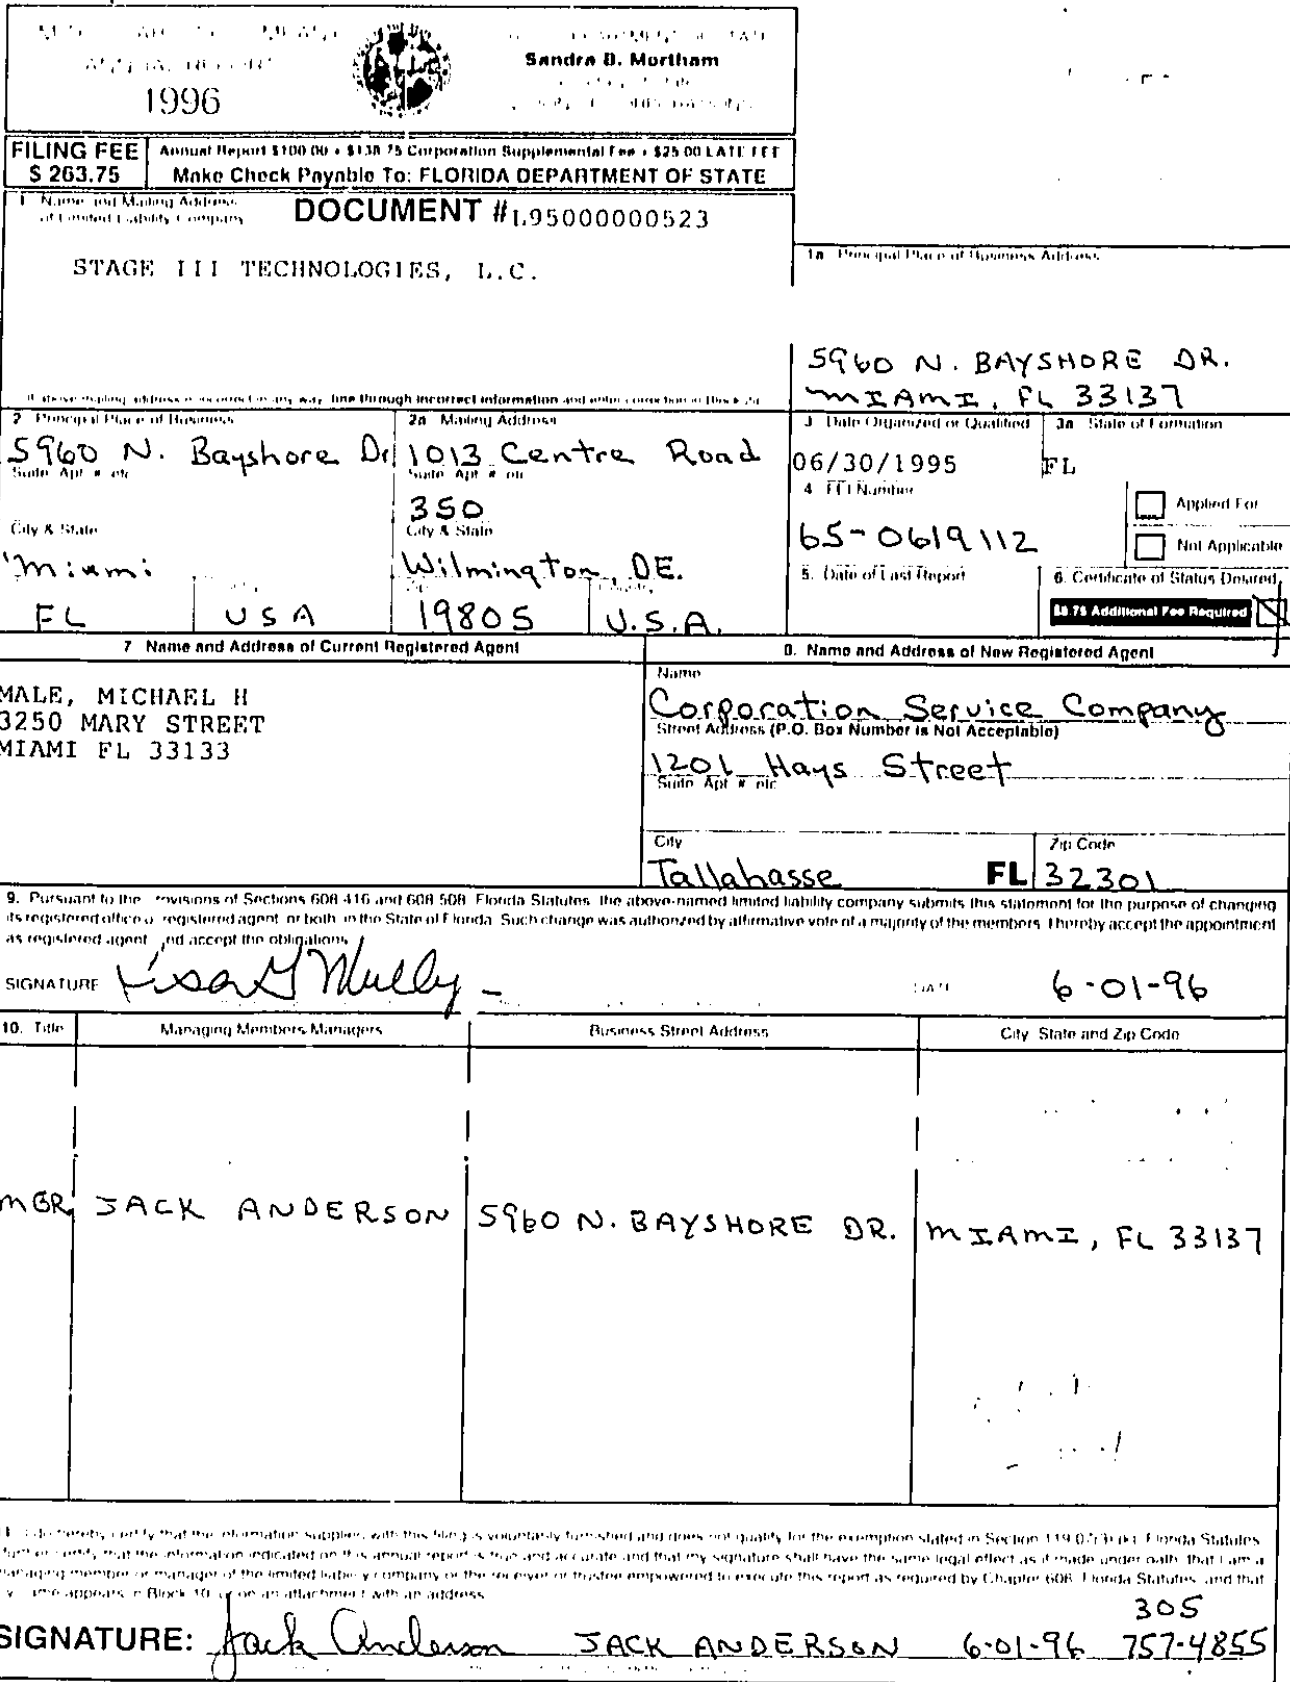 1996
Sandra B. Mortham
FILING FEE
$ 263.75
Annual Report $100.00 + $138.75 Corporation Supplemental Fee + $25.00 LATE FEE
Make Check Payable To: FLORIDA DEPARTMENT OF STATE
1 Name and Mailing Address
of Limited Liability Company
DOCUMENT # L95000000523
STAGE III TECHNOLOGIES, L.C.
1a Principal Place of Business Address
5960 N. BAYSHORE DR.
MIAMI, FL 33137
If above mailing address is incorrect in any way, line through incorrect information and enter correction in Block 2a
2 Principal Place of Business
5960 N. Bayshore Dr
Suite Apt # etc
City & State
Miami
FL
USA
2a Mailing Address
1013 Centre Road
Suite Apt # etc
350
City & State
Wilmington, DE.
19805
U.S.A.
3 Date Organized or Qualified
06/30/1995
3a State of Formation
FL
4 FEI Number
65-0619112
Applied For
Not Applicable
5. Date of Last Report
6. Certificate of Status Desired
$8.75 Additional Fee Required
7 Name and Address of Current Registered Agent
MALE, MICHAEL H
3250 MARY STREET
MIAMI FL 33133
8. Name and Address of New Registered Agent
Name
Corporation Service Company
Street Address (P.O. Box Number is Not Acceptable)
1201 Hays Street
Suite Apt # etc
City
Tallahasse
FL
Zip Code
32301
9. Pursuant to the provisions of Sections 608 416 and 608 508 Florida Statutes the above-named limited liability company submits this statement for the purpose of changing
its registered office or registered agent or both in the State of Florida Such change was authorized by affirmative vote of a majority of the members I hereby accept the appointment
as registered agent and accept the obligations
SIGNATURE
DATE
6-01-96
10. Title
Managing Members/Managers
Business Street Address
City State and Zip Code
MGR
JACK ANDERSON
5960 N. BAYSHORE DR.
MIAMI, FL 33137
I do hereby certify that the information supplied with this filing is voluntarily furnished and does not qualify for the exemption stated in Section 119 07(3) Florida Statutes
further certify that the information indicated on this annual report is true and accurate and that my signature shall have the same legal effect as if made under oath that I am a
managing member or manager of the limited liability company or the receiver or trustee empowered to execute this report as required by Chapter 608 Florida Statutes and that
name appears in Block 10 or on an attachment with an address
305
SIGNATURE: Jack Anderson JACK ANDERSON 6-01-96 757-4855